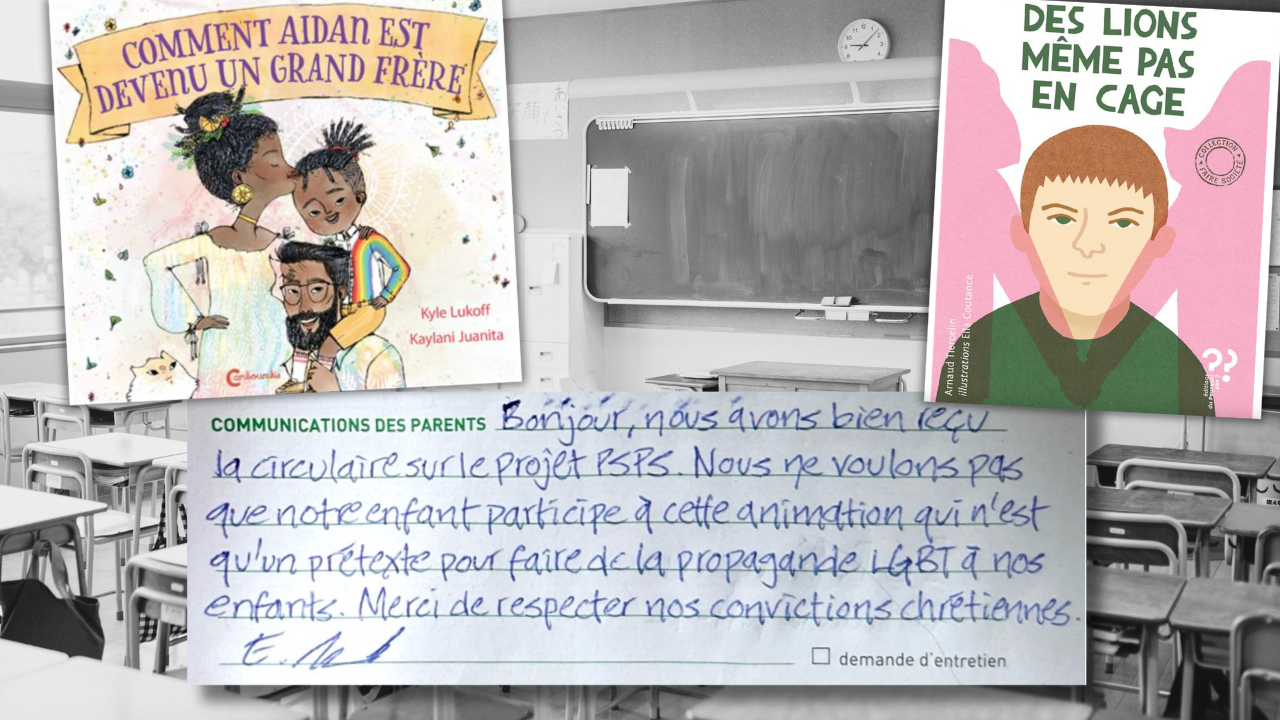 COMMENT AIDAN EST
DEVENU UN GRAND FRÈRE
Kyle Lukoff
Kaylani Juanita
Cambourakis
DES LIONS
MÊME PAS
EN CAGE
COLLECTION
FAIRE SOCIÉTÉ
Arnaud Tiercelin
illustrations Ella Coutance
??
COMMUNICATIONS DES PARENTS Bonjour, nous avons bien reçu
la circulaire sur le projet PSPS. Nous ne voulons pas
que notre enfant participe à cette animation qui n'est
qu'un prétexte pour faire de la propagande LGBT à nos
enfants. Merci de respecter nos convictions chrétiennes.
☐ demande d'entretien